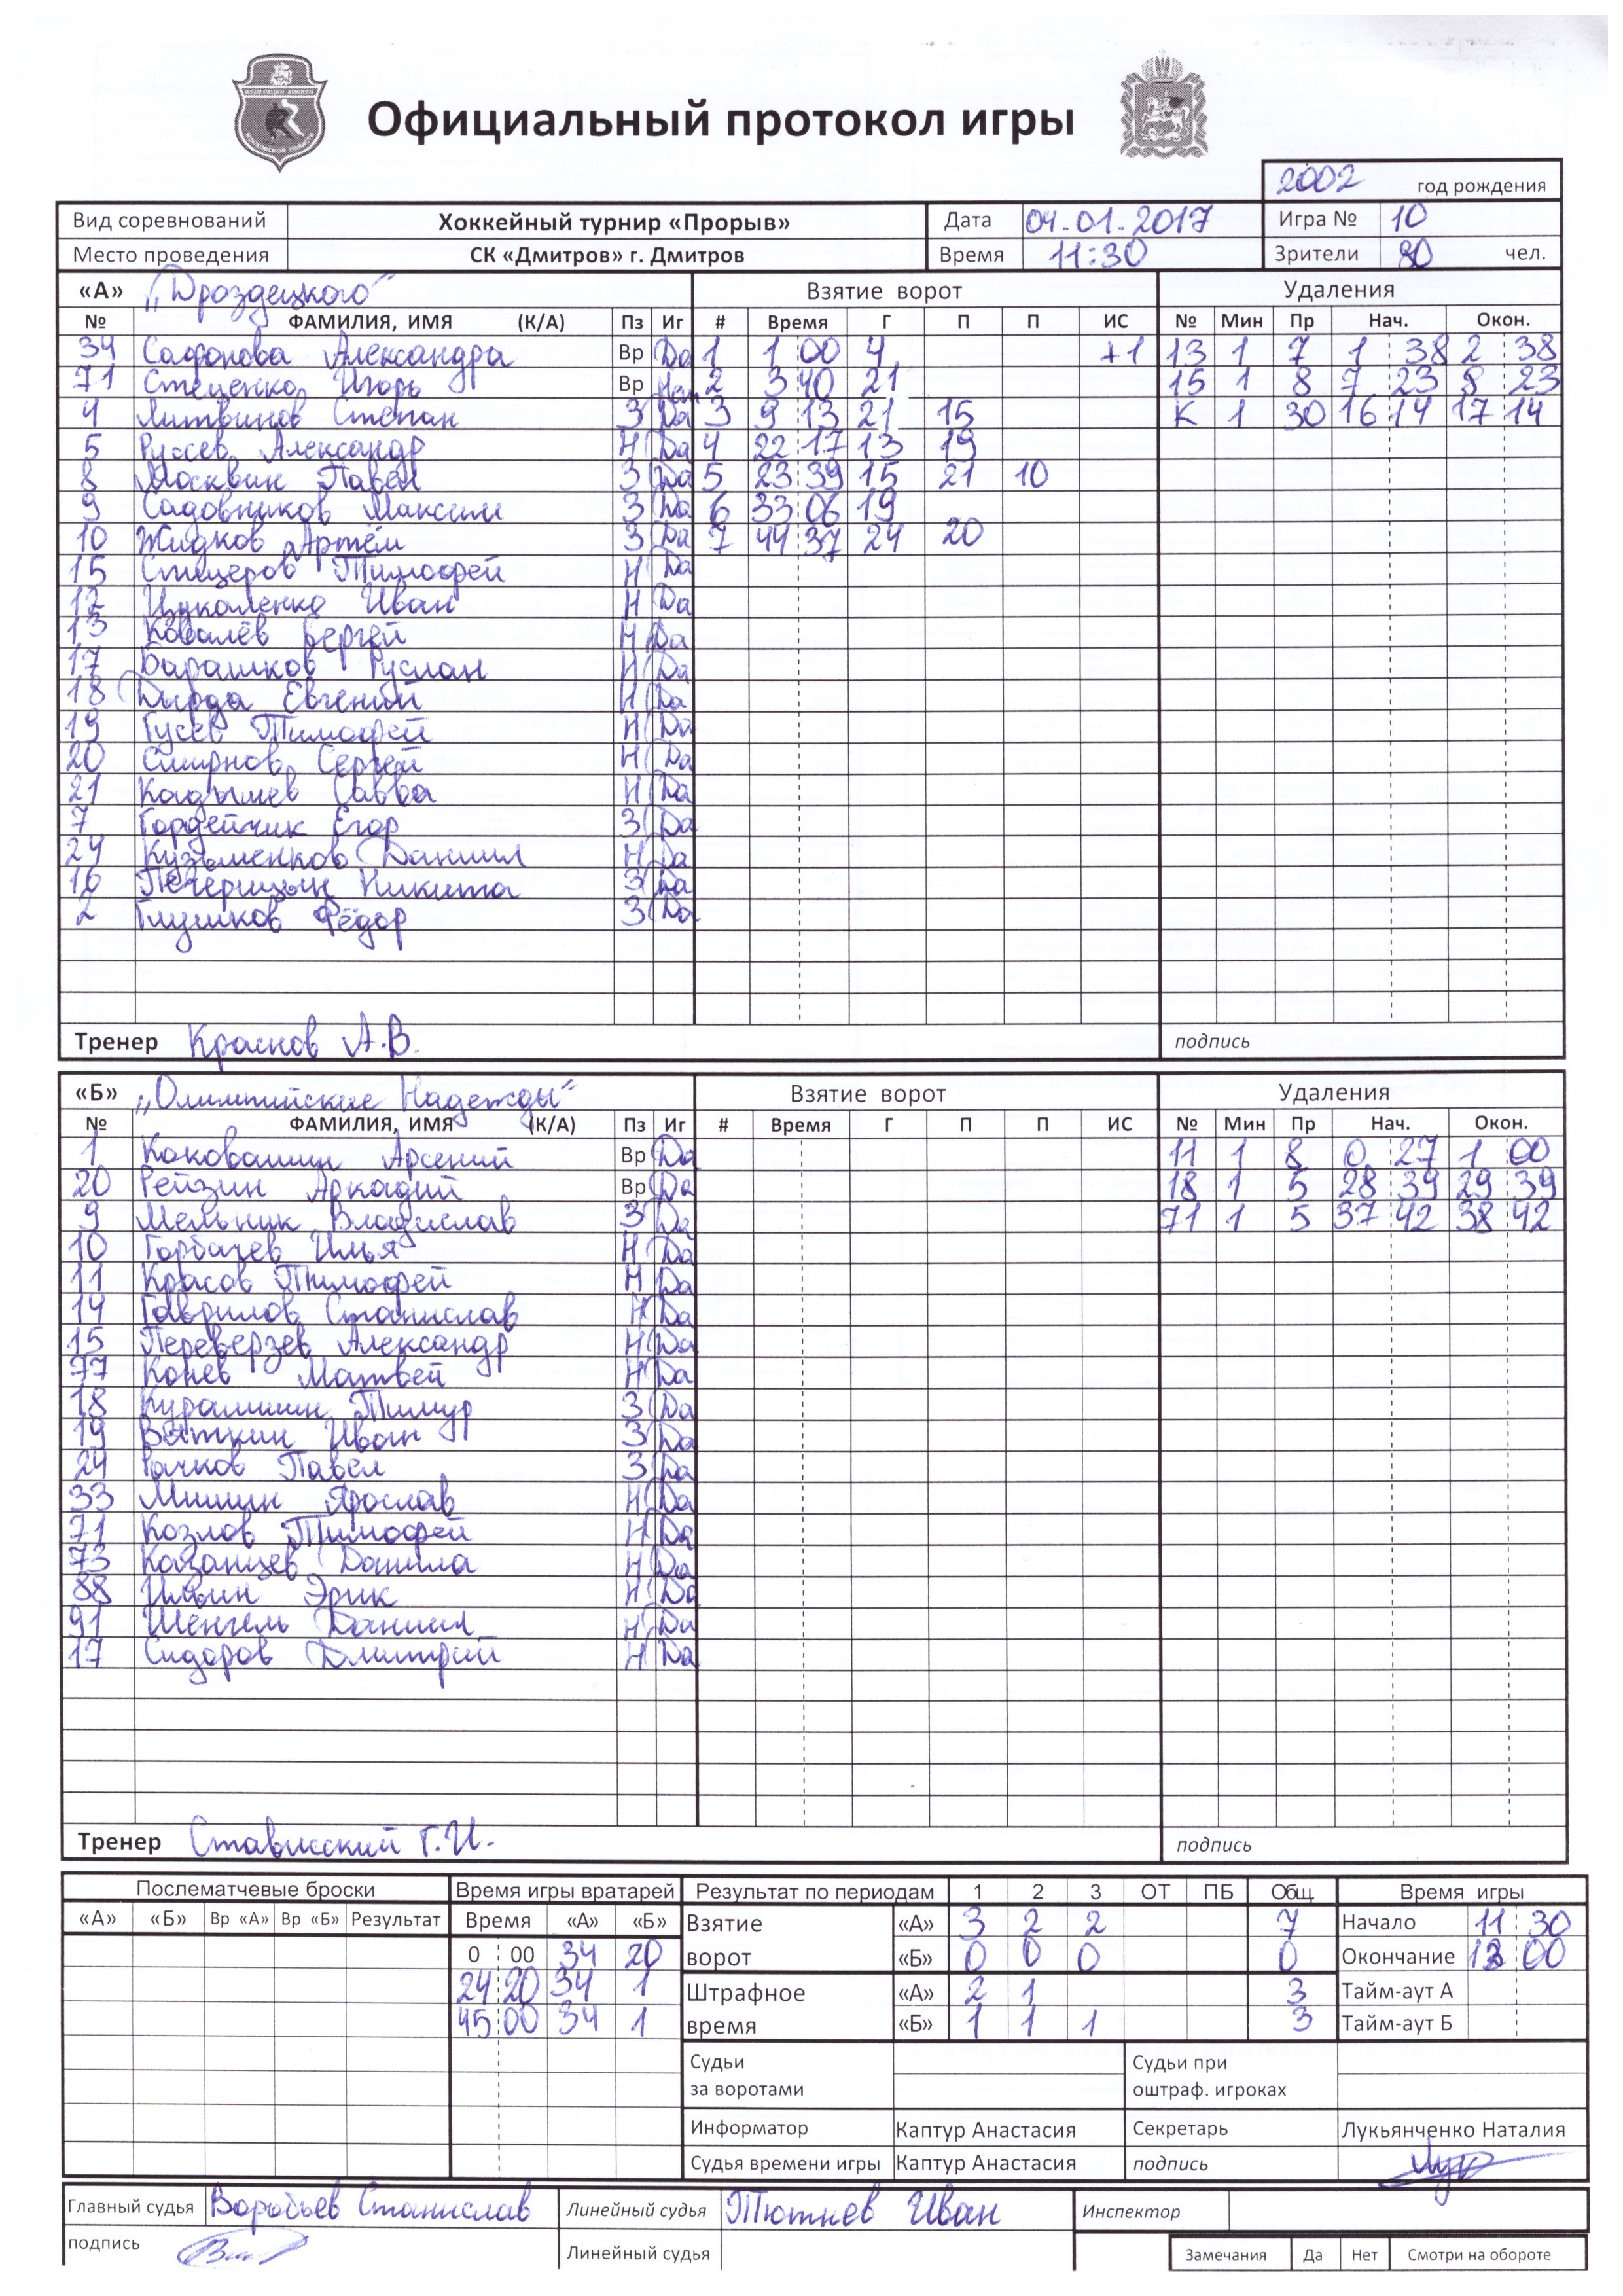 Официальный протокол игры
2002 год рождения
Вид соревнований Хоккейный турнир «Прорыв» Дата 04.01.2017 Игра № 10
Место проведения СК «Дмитров» г. Дмитров Время 11:30 Зрители 80 чел.
«А» „Дроздецкого“ Взятие ворот Удаления
№ ФАМИЛИЯ, ИМЯ (К/А) Пз Иг # Время Г П П ИС № Мин Пр Нач. Окон.
34 Сафонова Александра Вр Да 1 1 00 4 +1 13 1 7 1 38 2 38
71 Стеценко Игорь Вр Нет 2 3 40 21 15 1 8 7 23 8 23
4 Литвинов Степан З Да 3 9 13 21 15 К 1 30 16 14 17 14
5 Руссев Александр Н Да 4 22 17 13 19
8 Москвин Павел З Да 5 23 39 15 21 10
9 Садовников Максим З Да 6 33 06 19
10 Жидков Артём З Да 7 44 37 24 20
15 Тимофей Н Да
12 Иван Н Да
13 Ковалёв Сергей Н Да
17 Барашков Руслан Н Да
18 Дырда Евгений Н Да
19 Гусев Тимофей Н Да
20 Смирнов Сергей Н Да
21 Кадышев Савва Н Да
7 Гордейчик Егор З Да
24 Кузьменков Даниил Н Да
16 Печерицын Никита З Да
2 Глушков Фёдор З Да
Тренер Краснов А.В. подпись
«Б» „Олимпийские Надежды“ Взятие ворот Удаления
№ ФАМИЛИЯ, ИМЯ (К/А) Пз Иг # Время Г П П ИС № Мин Пр Нач. Окон.
1 Коковашин Арсений Вр Да 11 1 8 0 27 1 00
20 Рейзин Аркадий Вр Да 18 1 5 28 39 29 39
9 Мельник Владислав З Да 71 1 5 37 42 38 42
10 Горбачев Илья Н Да
11 Красов Тимофей Н Да
14 Гаврилов Станислав Н Да
15 Переверзев Александр Н Да
77 Конев Матвей Н Да
18 Курамшин Тимур З Да
19 Вяткин Иван З Да
24 Рачков Павел З Да
33 Мишин Ярослав Н Да
71 Козлов Тимофей Н Да
73 Казанцев Данила Н Да
88 Ильин Эрик Н Да
91 Шенгель Даниил Н Да
17 Сидоров Дмитрий Н Да
Тренер Стависский Г.И. подпись
Послематчевые броски Время игры вратарей Результат по периодам 1 2 3 ОТ ПБ Общ. Время игры
«А» «Б» Вр «А» Вр «Б» Результат Время «А» «Б» Взятие «А» 3 2 2 7 Начало 11 30
0 00 34 20 ворот «Б» 0 0 0 0 Окончание 13 00
24 20 34 1 Штрафное «А» 2 1 3 Тайм-аут А
45 00 34 1 время «Б» 1 1 1 3 Тайм-аут Б
Судьи Судьи при
за воротами оштраф. игроках
Информатор Каптур Анастасия Секретарь Лукьянченко Наталия
Судья времени игры Каптур Анастасия подпись
Главный судья Воробьев Станислав Линейный судья Тютнев Иван Инспектор
подпись Линейный судья Замечания Да Нет Смотри на обороте